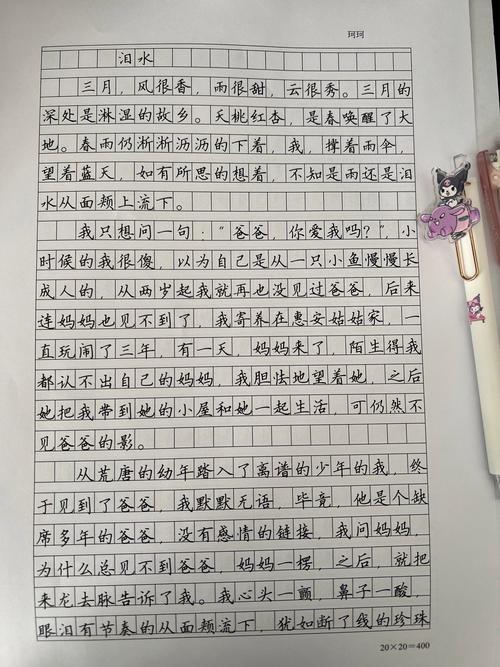 珂珂
泪水
三月，风很香，雨很甜，云很秀。三月的
深处是淋湿的故乡。夭桃红杏，是春唤醒了大
地。春雨仍淅淅沥沥的下着，我，撑着雨伞，
望着蓝天，如有所思的想着，不知是雨还是泪
水从面颊上流下。
我只想问一句：“爸爸，你爱我吗？”，小
时候的我很傻，以为自己是从一只小鱼慢慢长
成人的，从两岁起我就再也没见过爸爸，后来
连妈妈也见不到了，我寄养在惠安姑姑家，一
直玩闹了三年，有一天，妈妈来了，陌生得我
都认不出自己的妈妈，我胆怯地望着她，之后
她把我带到她的小屋和她一起生活，可仍然不
见爸爸的影。
从荒唐的幼年踏入了离谱的少年的我，终
于见到了爸爸，我默默无语，毕竟，他是个缺
席多年的爸爸，没有感情的链接，我问妈妈，
为什么总见不到爸爸，妈妈一楞，之后，就把
来龙去脉告诉了我。我心头一颤，鼻子一酸，
眼泪有节奏的从面颊流下，犹如断了线的珍珠
20×20=400